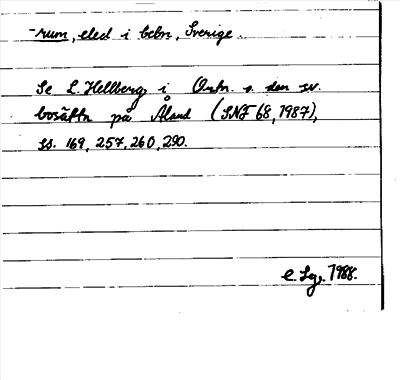 -rum, eled i bebn, Sverige.
Se L. Hellberg i Ortn. o. den sv.
bosättn på Åland (SNF 68, 1987),
ss. 169, 257, 260, 290.
1988.